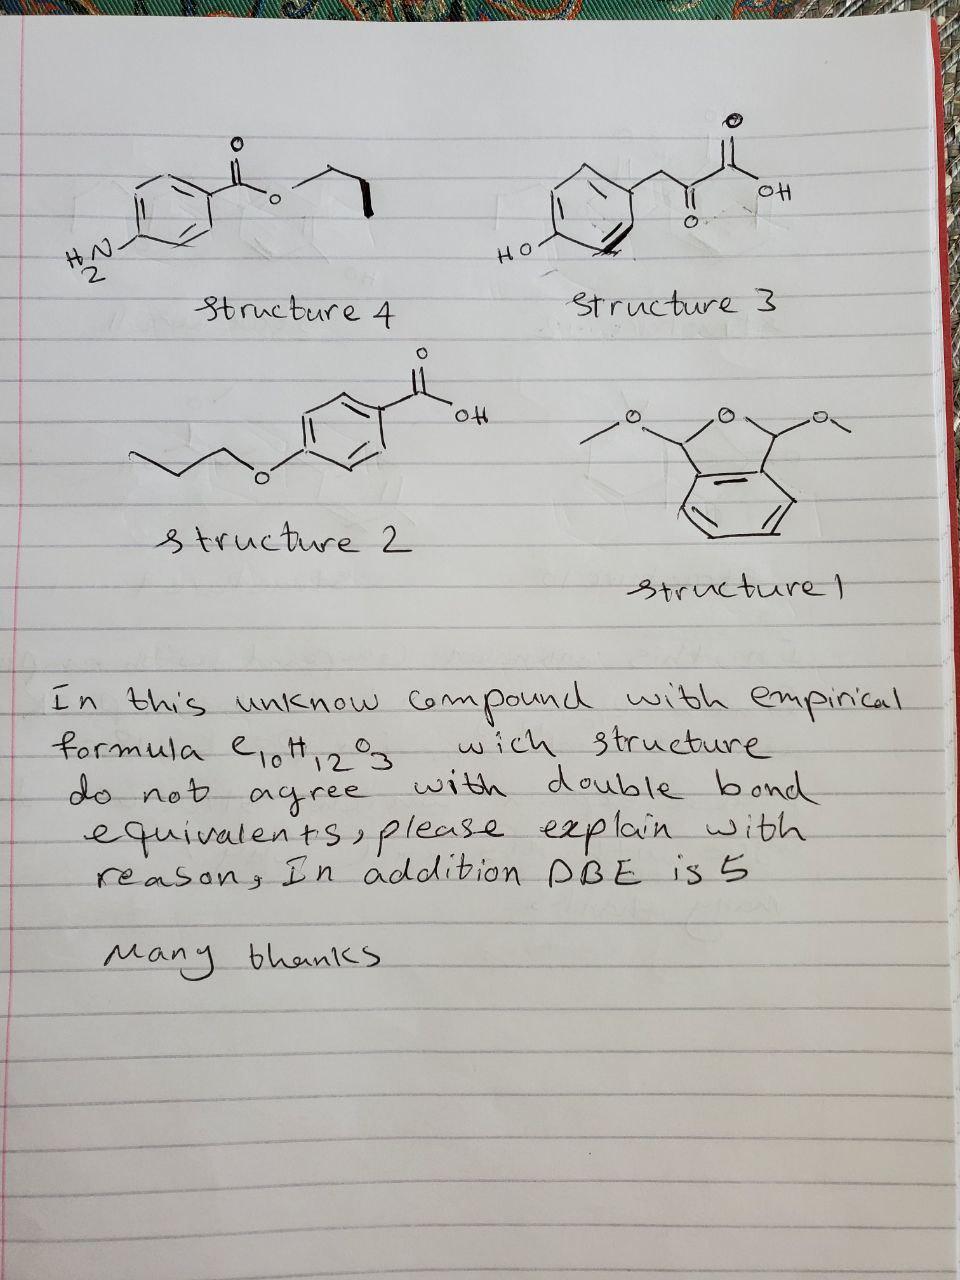 O
O
O
H2N
structure 4
O
OH
O
HO
structure 3
O
OH
O
structure 2
O O O
structure 1
In this unknow compound with empirical
formula C10H12O3 wich structure
do not agree with double bond
equivalents, please explain with
reason, In addition DBE is 5
Many thanks